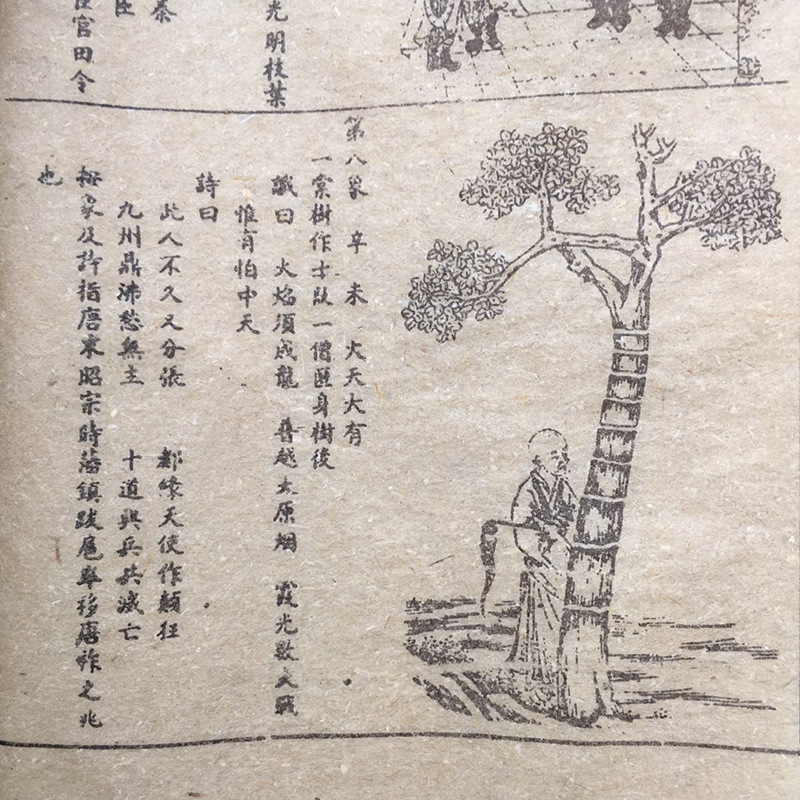 光明枝葉
秦
臣
官田令
第八象 辛未 火天大有
一棠樹作士臥一僧匿身樹後
讖曰 火焰須成龍 普越太原烟 霞光數丈戰
惟有怕中天
詩曰
此人不久又分張 都緣天使作顛狂
九州鼎沸愁無主 十道興兵共滅亡
按象及詩指唐末昭宗時藩鎮跋扈卒移唐祚之兆
也